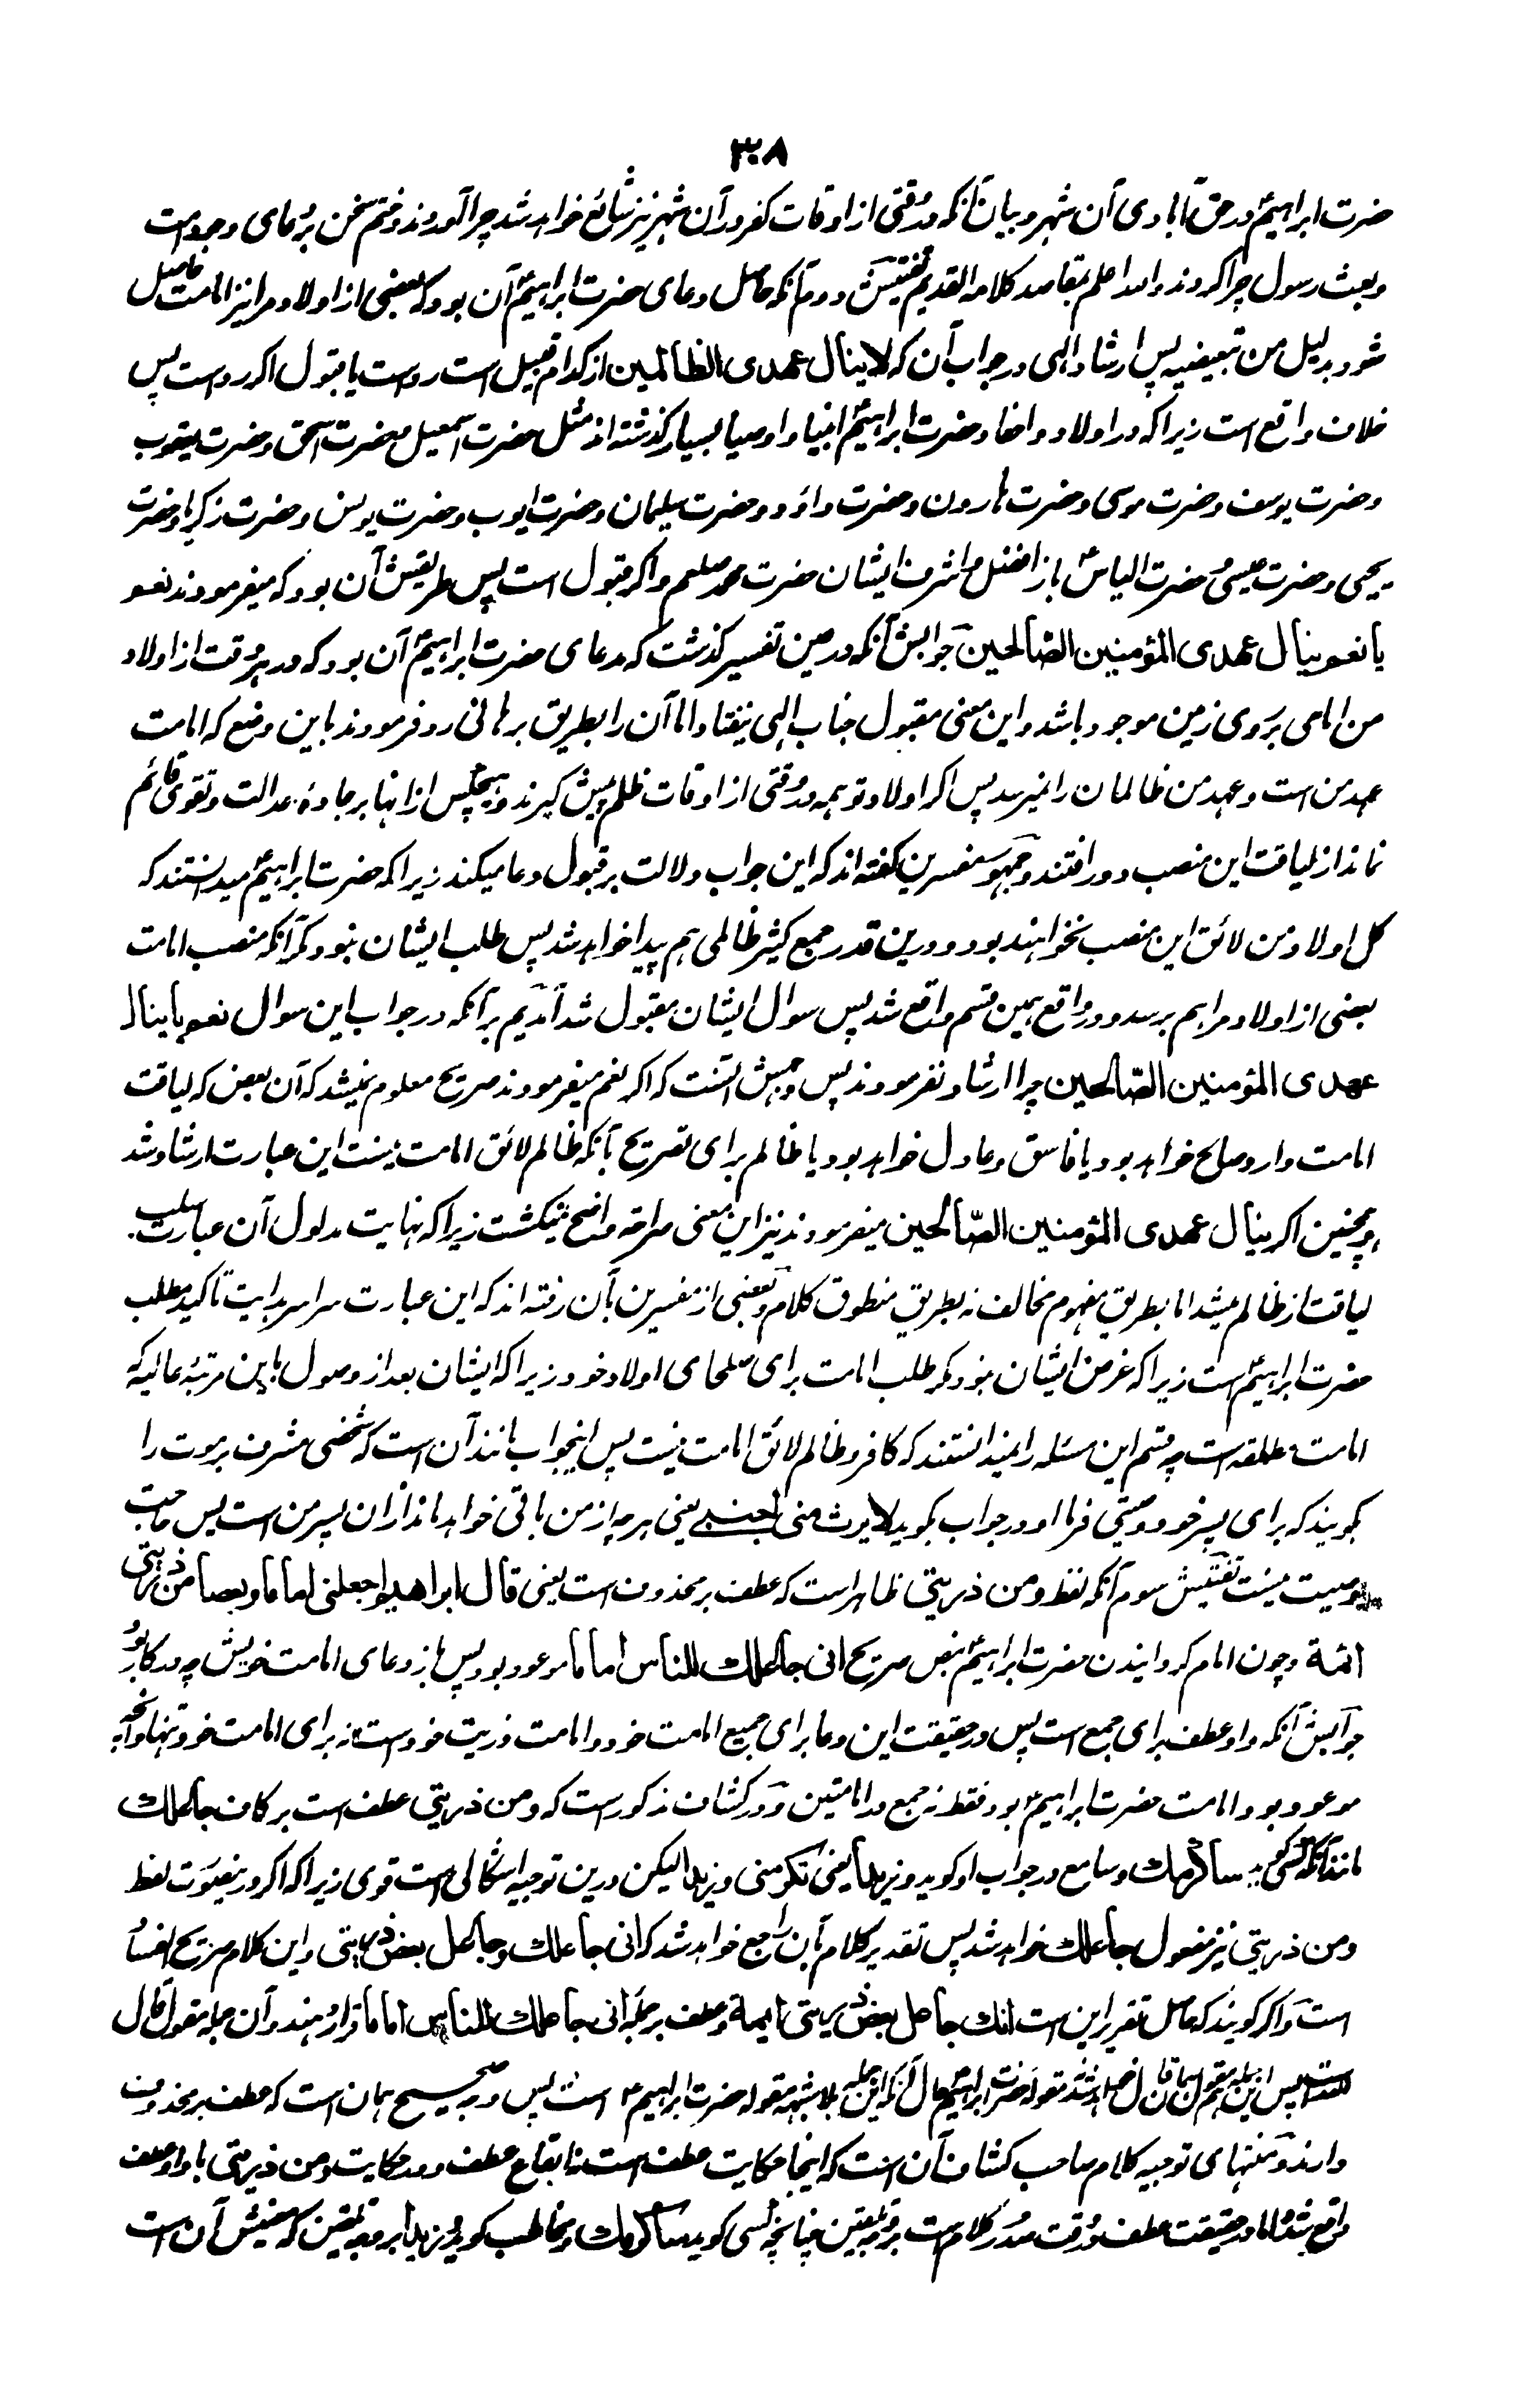 ۳۰۸
حضرت ابراهیمؑ در حق آبادی آن شهر و بیان آنکه در وقتی از اوقات کفر در آن شهر نیز شائع خواهد شد چرا آوردند و ختم سخن بر دعای وجود است
و بعث رسول چرا کردند والله اعلم بمقاصد کلامه القدیم تفتیش دوم آنکه حاصل دعای حضرت ابراهیمؑ آن بود که بعضی از اولاد مرا نیز امامت حاصل
شود بدلیل من تبعیضیه پس ارشاد الهی در جواب آن که لاینال عهدی الظالمین از کدام قبیل است رد است یا قبول اگر رد است پس
خلاف واقع است زیرا که در اولاد و احفاد حضرت ابراهیمؑ انبیا و اوصیا بسیار گذشته اند مثل حضرت اسمعیل و حضرت اسحق و حضرت یعقوب
و حضرت یوسف و حضرت موسی و حضرت هارون و حضرت داؤد و حضرت سلیمان و حضرت ایوب و حضرت یونس و حضرت زکریا و حضرت
یحیی و حضرت عیسیؑ و حضرت الیاسؑ باز افضل و اشرف ایشان حضرت محمد صلعم و اگر قبول است پس طریقش آن بود که میفرمودند نعم
یا نعم ینال عهدی المؤمنین الصالحین جوابش آنکه در عین تفسیر گذشت که مدعای حضرت ابراهیمؑ آن بود که در هر وقت از اولاد
من امامی بر روی زمین موجود باشد و این معنی مقبول جناب الهی نیفتاد اما آن را بطریق برهانی رد فرمودند باین وضع که امامت
عهد من است و عهد من ظالمان را نمیرسد پس اگر اولاد تو همه در وقتی از اوقات ظلم پیش گیرند و هیچکس از انها بر جاده عدالت و تقوی قائم
نماند از لیاقت این منصب دور افتند و جمهور مفسرین گفته اند که این جواب دلالت بر قبول دعا میکند زیرا که حضرت ابراهیمؑ میدانستند که
کل اولاد من لائق این منصب نخواهند بود و درین قدر جمع کثیر ظالمی هم پیدا خواهد شد پس طلب ایشان نبود مگر آنکه منصب امامت
بعضی از اولاد مرا هم برسد و در واقع همین قسم واقع شد پس سوال ایشان مقبول شد آمدیم بر آنکه در جواب این سوال نعم یا ینال
عهدی المؤمنین الصّالحین چرا ارشاد نفرمودند پس وجهش آنست که اگر نعم میفرمودند صریح معلوم نمیشد که آن بعض که لیاقت
امامت دارد صالح خواهد بود یا فاسق و عادل خواهد بود یا ظالم برای تصریح بآنکه ظالم لائق امامت نیست این عبارت ارشاد شد
و همچنین اگر ینال عهدی المؤمنین الصّالحین میفرمودند نیز این معنی صراحة واضح نمیگشت زیرا که نهایت مدلول آن عبارت سلب
لیاقت از ظالم میشد اما بطریق مفهوم مخالف نه بطریق منطوق کلام و بعضی از مفسرین بآن رفته اند که این عبارت سراسر هدایت تاکید مطلب
حضرت ابراهیمؑ است زیرا که غرض ایشان نبود مگر طلب امامت برای صلحای اولاد خود زیرا که ایشان بعد از وصول باین مرتبهٔ عالیه که
امامت مطلقه است چه قسم این مسئله را نمیدانستند که کافر و ظالم لائق امامت نیست پس اینجواب مانند آن است که شخصی مشرف بر موت را
بگویند که برای پسر خود وصیتی فرما او در جواب بگوید لایرث منی اجنبی یعنی هرچه از من باقی خواهد ماند از ان پسر من است پس حاجت
بوصیت نیست تفتیش سوم آنکه لفظ و من ذریتی ظاهر است که عطف بر محذوف است یعنی قال ابراهیم اجعلنی اماما و بعضا من ذریتی
ائمة و چون امام گردانیدن حضرت ابراهیمؑ بنص صریح انی جاعلک للناس اماما موعود بود پس باز دعای امامت خویش چه درکار بود
جوابش آنکه واو عطف برای جمع است پس در حقیقت این دعا برای جمیع امامت خود و امامت ذریت خود است نه برای امامت خود تنها و آنچه
موعود بود امامت حضرت ابراهیمؑ بود فقط نه جمع در امامتین و در کشاف مذکور است که و من ذریتی عطف است بر کاف جاعلک
مانند آنکه کسی گوید ساکرمک و سامع در جواب او گوید و زیدا یعنی تکرمنی و زیدا لیکن درین توجیه اشکالی است قوی زیرا که اگر درینصورت لفظ
ومن ذریتی نیز مفعول جاعلک خواهد شد پس تقدیر کلام بآن راجع خواهد شد که انی جاعلک و جاعل بعض ذریتی و این کلام صریح الفساد
است و اگر گویند که حاصل تقریر این است انک جاعل بعض ذریتی ایمة و عطف بر جمله انی جاعلک للناس اماما قرار دهند و آن جمله مقول قال
است پس این جمله هم مقول همان قال خواهد شد نه مقوله حضرت ابراهیمؑ حال آنکه این جمله بلا شبهه مقوله حضرت ابراهیمؑ است پس وجه صحیح همان است که عطف بر محذوف
دارند و منتهای توجیه کلام صاحب کشاف آن است که اینجا حکایت عطف است نه ایقاع عطف و در حکایت و من ذریتی با واو عطف
واقع شده اما در حقیقت عطف در وقت صدور کلام است بر وجه تلقین چنانچه کسی گوید ساکرمک و مخاطب گوید و زیدا بر وجه تلقین که معنیش آن است